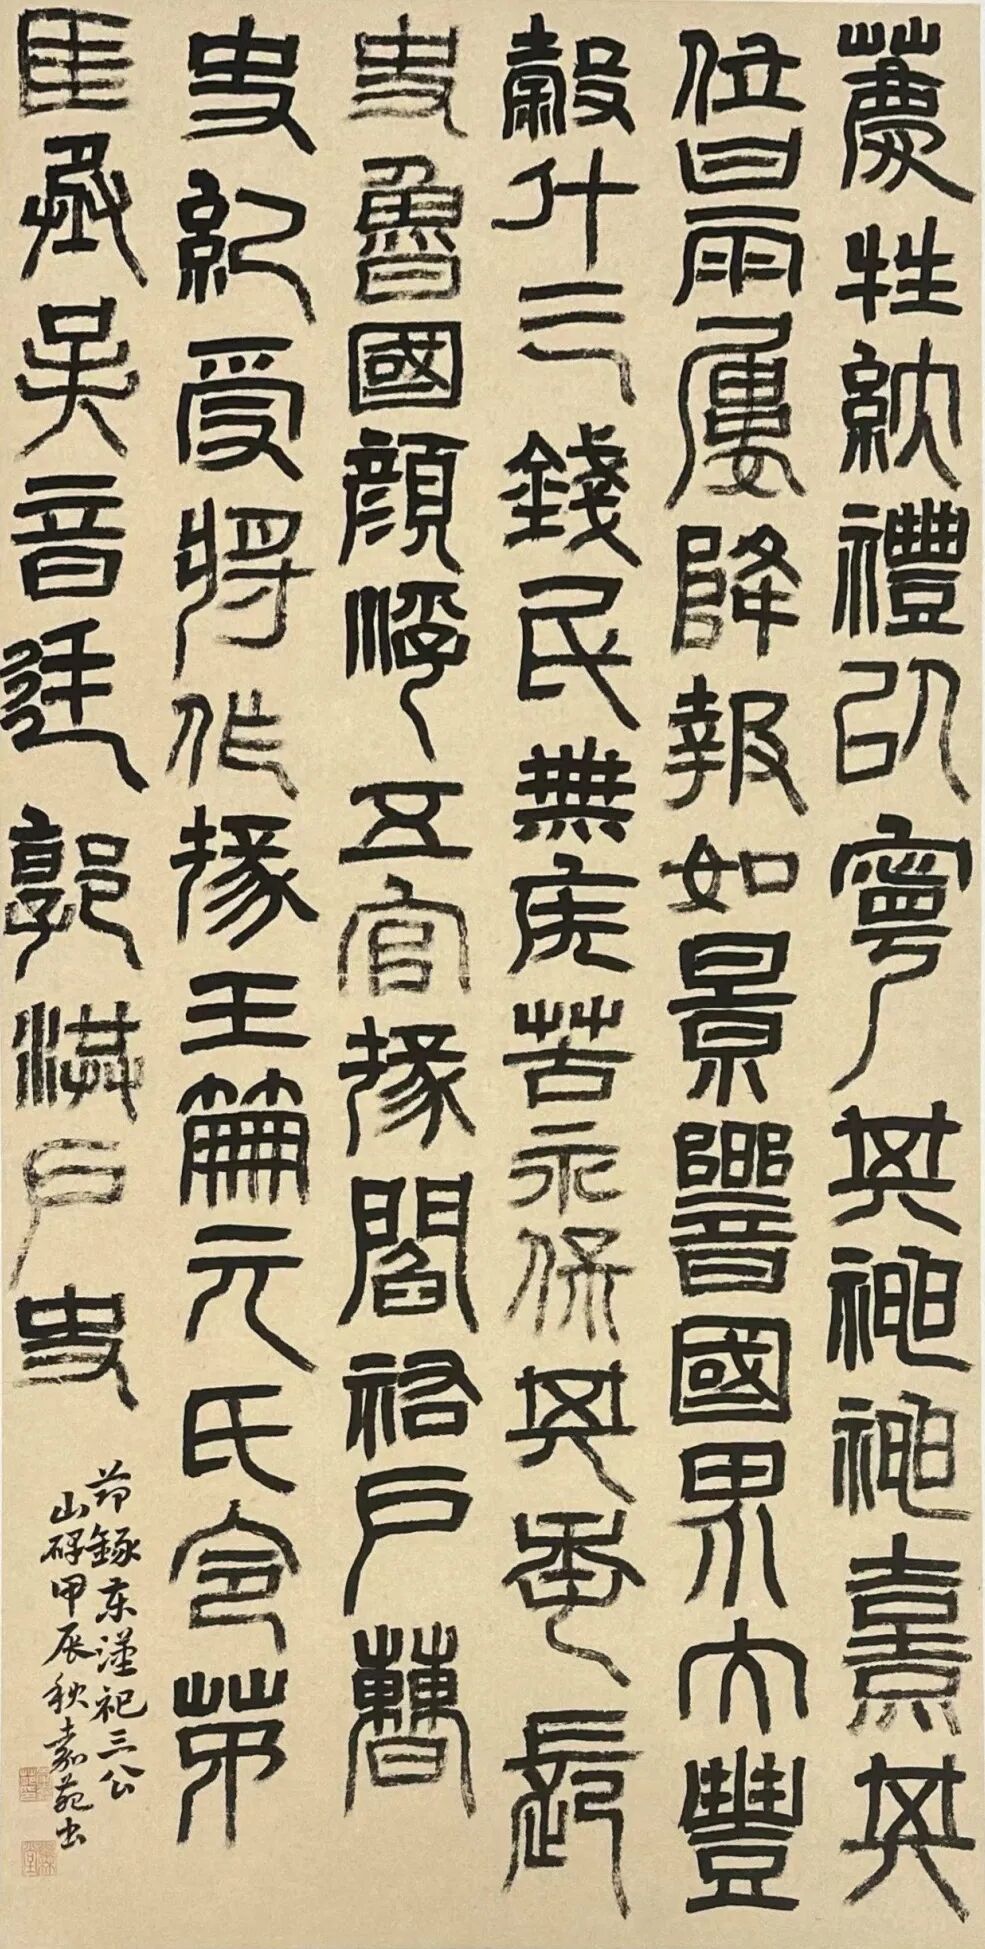 薦牲納禮以寧其神神熹其
位甘雨屢降報如景響國界大豐
穀斗三錢民無疾苦永保其年長
史魯國顏浮五官掾閻祐戶曹
史紀受將作掾王笧元氏令茅
匡丞吳音廷郭洪戶史
節錄东漢祀三公
山碑甲辰秋嘉苑书